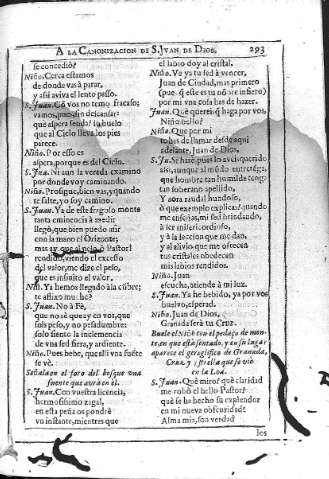 A LA CANONIZACION DE S. JVAN DE DIOS. 293
se concediò?
Niño. Cerca estamos
de donde vas à parar,
y assi aviva el lento passo.
S. Juan. Cõ vos no temo fracaso;
vamos, pues sin descansar:
que aspera senda! su buelo
que al Cielo lleva los pies
parece.
Niño. Por esso es
aspera, porque es del Cielo.
S. Jua. Ni aun la vereda examino
por donde voy caminando.
Niño. Prosigue, bien vas, y quando
te falte, yo soy camino.
S. Juan. Ya de este fragoso monte
tanta eminencia à medir
llegò, que bien puedo mir
con la mano el Orizonte;
mas ay que al peso ò Pastor!
rendido, viendo el excesso
del valor, me dize el peso,
que es infinito el valor.
Niñ. Ya hemos llegado à la cũbre;
te assiro mucho?
S. Juan. No à Fè,
que no sè que ay en vos, que
sois peso, y no pesadumbre:
solo siento la inclemencia
de vna sed fiera, y ardiente.
Niño. Pues bebe, que alli vna fuẽte
se vè.
Señala en el foro del bosque una
fuente que avrà en èl.
S. Juan. Con vuestra licencia,
hermosissimo zagal,
en esta peña os pondrè
vn instante, mientras que
el labio doy al cristal.
Niño. Ve ya tu sed à vencer,
Juan de Ciudad, mas primero
(pues q̃ este es tu nõbre infiero)
por mi vna cosa has de hazer.
S. Juan. Què quereis q̃ haga por vos,
Niño bello?
Niño. Que por mi
te has de llamar desde aqui
adelante, Juan de Dios.
S. Ju. Si harè, pues lo aveis querido
assi, aunque al mũdo entretẽga,
que hombre tan humilde tenga
tan soberano apellido,
Y aora raudal hundoso,
ò que exemplo explica! quando
me enseñas, mi sed brindando,
à ser misericordioso,
y à la leccion que me dan,
y al alivio que me ofrecen
tus cristales obedecen
mis labios rendidos.
Niño. Juan
escucha, atiende à mi luz.
S. Juan. Ya he bebido, ya por vos
buelvo, esperad.
Niño. Juan de Dios,
Granada serà tu Cruz.
Buele el Niño con el pedaço de mon-
te, en que està sentado, y en su lugar
aparece el geroglifico de Granada,
Cruz, y estrella que se viò
en la Loa.
S. Juan. Què miro? què claridad
me robò el bello Pastor?
què se ha hecho su esplendor
en mi nueva obscuridad?
Alma mia, son verdad
los